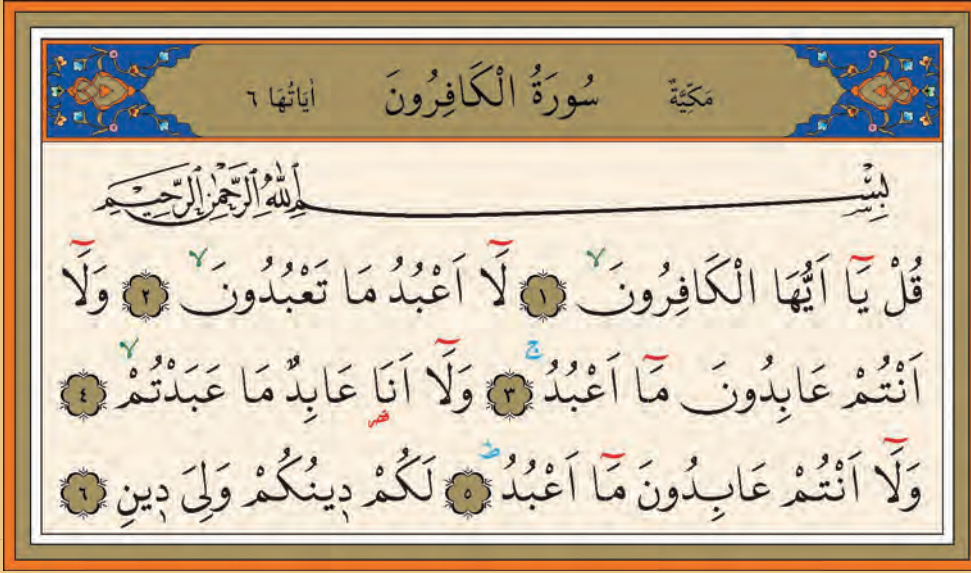 اٰيَاتُهَا ٦ سُورَةُ الْكَافِرُونَ مَكِّيَّةٌ
بِسْمِ اللّٰهِ الرَّحْمٰنِ الرَّحِيمِ
قُلْ يَٓا اَيُّهَا الْكَافِرُونَۙ ﴿١﴾ لَٓا اَعْبُدُ مَا تَعْبُدُونَۙ ﴿٢﴾ وَلَٓا
اَنْتُمْ عَابِدُونَ مَٓا اَعْبُدُۚ ﴿٣﴾ وَلَٓا اَنَا۬ عَابِدٌ مَا عَبَدْتُمْۙ ﴿٤﴾
وَلَٓا اَنْتُمْ عَابِدُونَ مَٓا اَعْبُدُۜ ﴿٥﴾ لَكُمْ د۪ينُكُمْ وَلِيَ د۪ينِ ﴿٦﴾